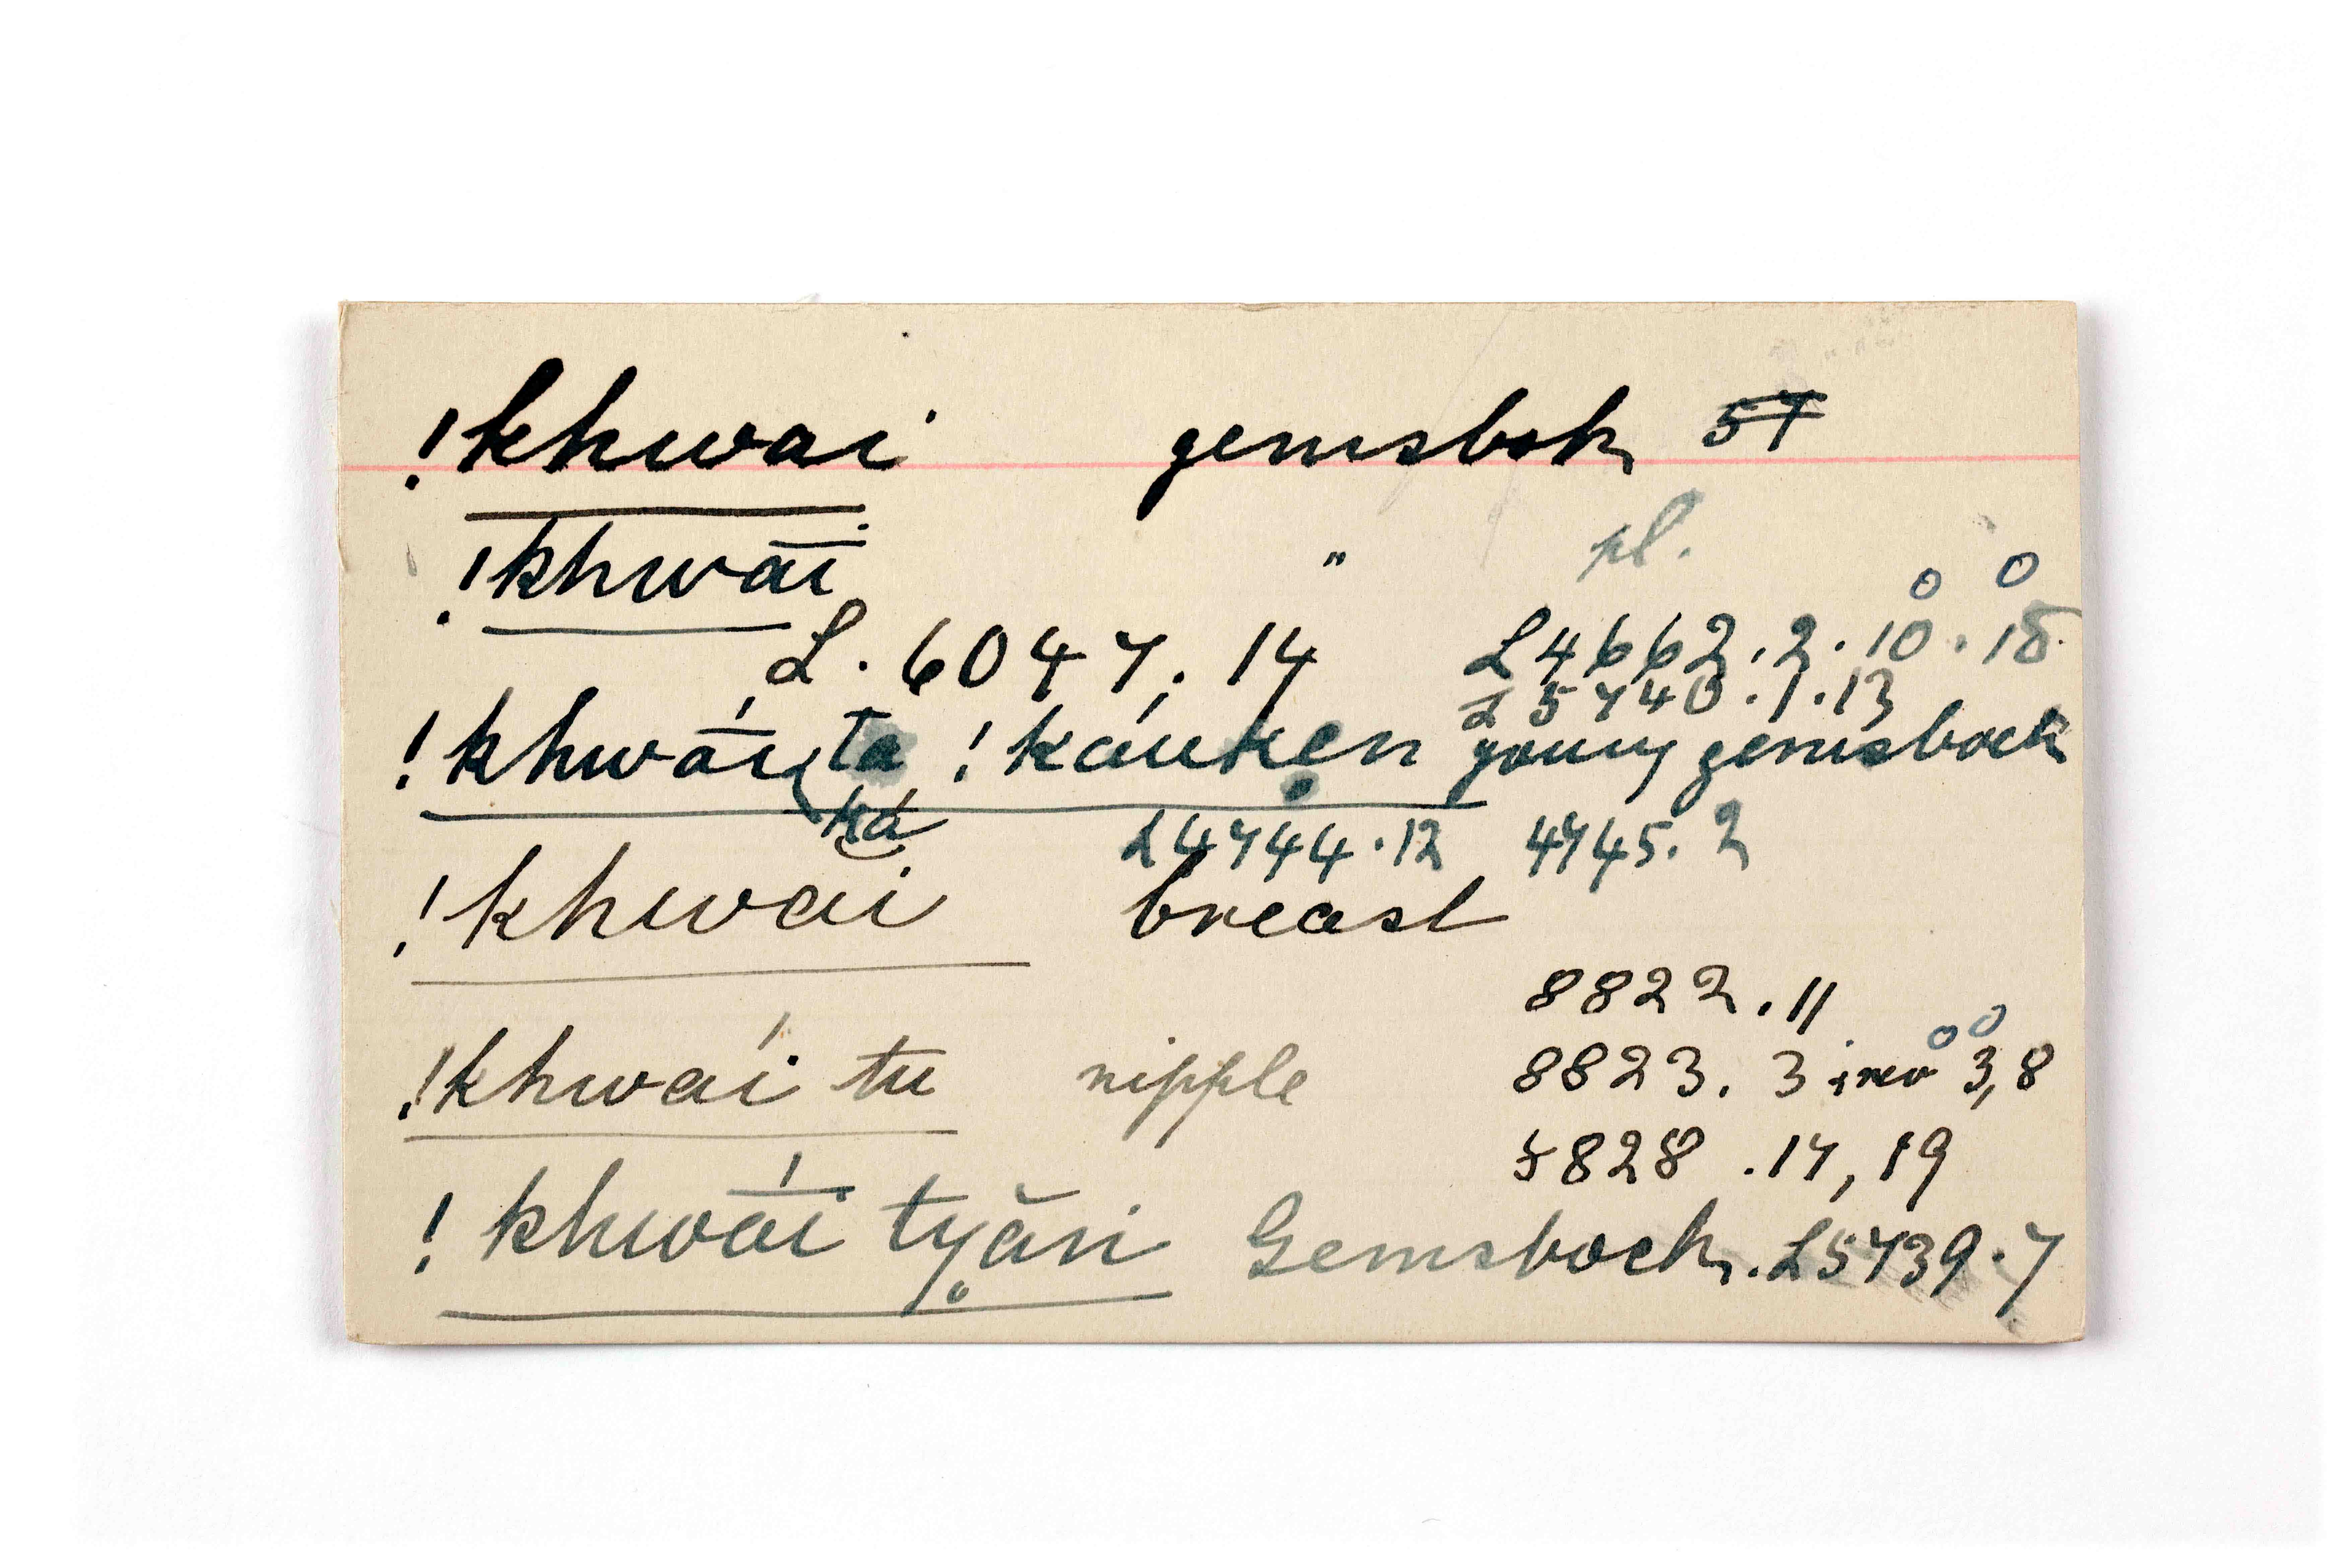 !khwai gemsbok 57
!khwāī " pl.
L. 6047. 14 L4662.2.10.18
L5740.1.13
!khwā́ī ta !káuken young gemsbock
ká L4744.12 4745.2
!khwai breast
8822.11
!khwaí tu nipple 8823. 3 3,8
8828 .17, 19
!khwā́ī tyări Gemsbock. L5739.7